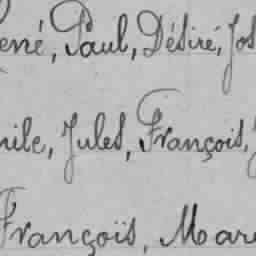 ené, Paul, Désiré, Jos
nile, Jules, François,
François, Mar